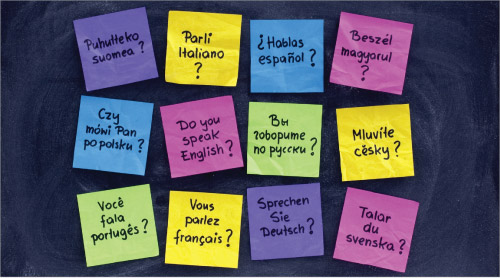 Puhutteko
suomea ?
Parli
Italiano
?
¿Hablas
español ?
Beszél
magyarul
?
Czy
mówi Pan
po polsku ?
Do you
speak
English ?
Вы
говорите
по русски ?
Mluvíte
česky ?
Você
fala
portugês ?
Vous
parlez
français ?
Sprechen
Sie
Deutsch ?
Talar
du
svenska ?